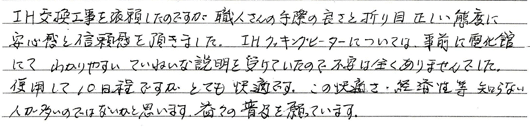 IH交換工事を依頼したのですが、職人さんの手際の良さと折り目正しい態度に
安心感と信頼感を頂きました。IHクッキングヒーターについては、事前に電化館
にて わかりやすい ていねいな説明を受けていたので不安は全くありませんでした。
使用して10日程ですが とても快適です。この快適さ・経済性等 知らない
人が多いのではないかと思います。益々の普及を願っています。